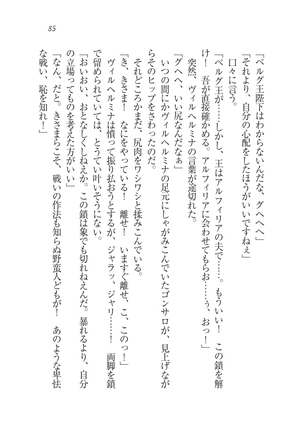 85
「ベルグ王陛下はわからないんだな、グヘヘ」
「それより、自分の心配をしたほうがいいですねぇ」
口々に言う。
「ベルグ王が……しかし、王はアルフィリアの夫で……。もういい! この鎖を解
け! 吾が直接確かめる。アルフィリアに会わせてもらお……ぅ、おっ!」
突然、ヴィルヘルミナの言葉が途切れた。
「グヘヘ、いい尻なんだなぁ」
いつの間にかヴィルヘルミナの足元にしゃがみこんでいたゴンサロが、見上げなが
らそのヒップをさわったのだ。
それどころかまだ、尻肉をワシワシと揉みこんでいる。
「き、きさま! なにをやっている! 離せ! いますぐ離せ、こ、このっ!」
ヴィルヘルミナは憤って振り払おうとするが、ジャラッ、ジャリ……! 両脚を鎖
で留められていては、とうてい叶いそうにない。
「おいおい、おとなしくしねえか。この鎖は象でも切れねえんだ。暴れるより、自分
の立場ってものを考えた方がいい」
「なん、だと。きさまらこそ、戦いの作法も知らぬ野蛮人どもが! あのような卑怯
な戦い、恥を知れ!」